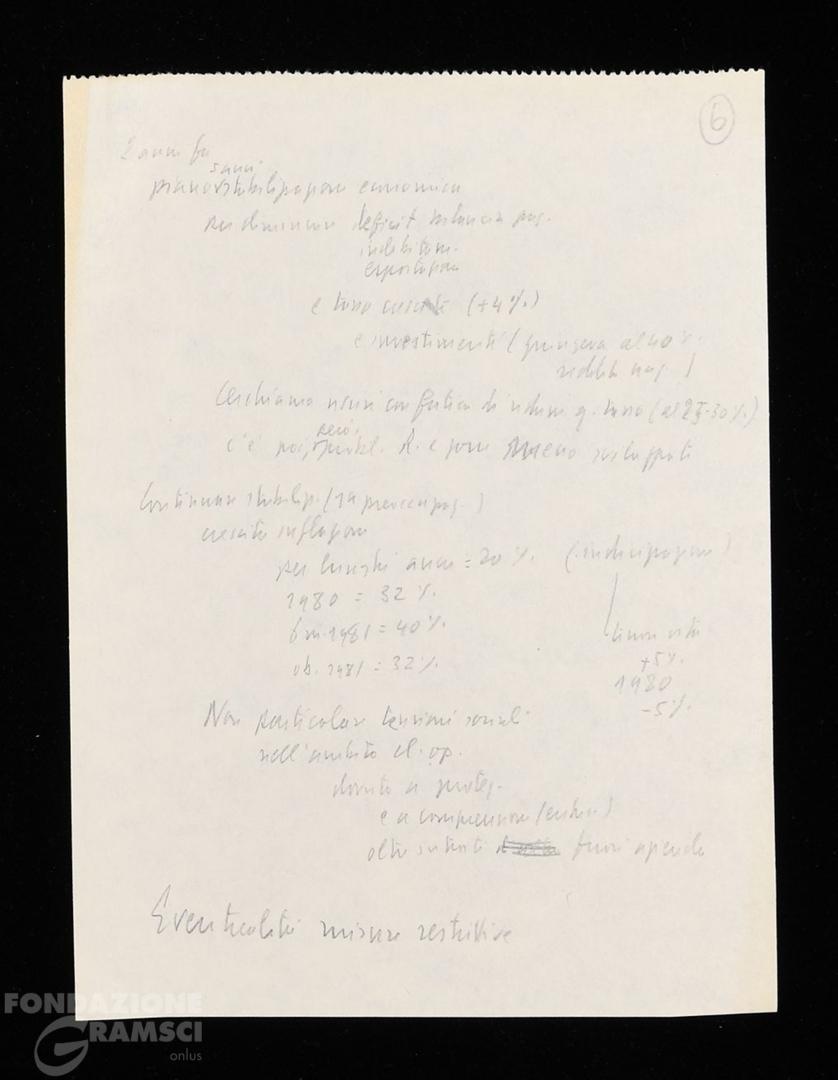 6
2 anni fa
piano stabilizzazione economica
per diminuire deficit bilancia pag.
indebitam.
esportazioni
e tasso crescita (+4%)
e investimenti (giungeva al 40%
reddito naz.)
Cerchiamo ora con fatica di ridurre q. tasso (al 25-30%)
però
c'è poi, probl. R. e prov. meno sviluppati
Continuare stabiliz. (1a preoccupaz.)
crescita inflazione
per lunghi anni = 20% (indicizzazione)
1980 = 32%
6 m. 1981 = 40%
ob. 1981 = 32%
tenore vita
+5%
1980
-5%
Non particolari tensioni sociali
nell'ambito cl. op.
dovuto a
e a comprensione
oltre fuori azienda
Eventualità misure restrittive
FONDAZIONE
GRAMSCI
onlus